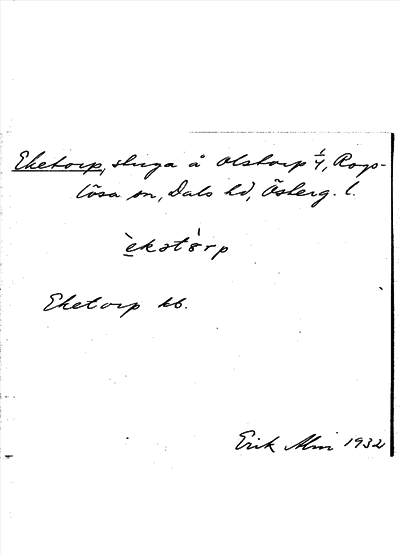 Eketorp, stuga å Olstorp 1/4, Rogs-
lösa sn, Dals hd, Österg. l.
èkətórp
Eketorp kb.
Erik Alm 1932